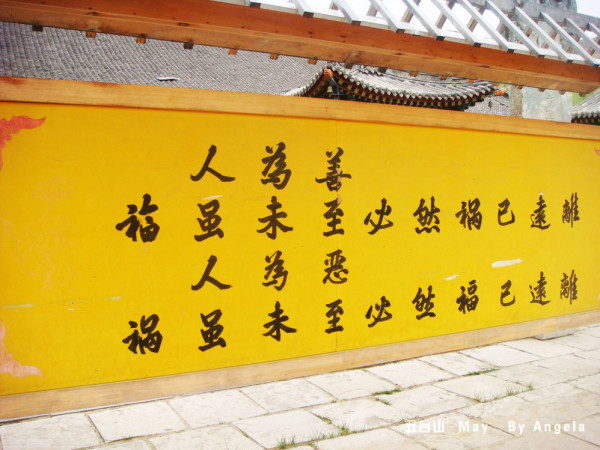 人為善
福虽未至必然祸已遠離
人為恶
祸虽未至必然福已遠離
五台山 May By Angela